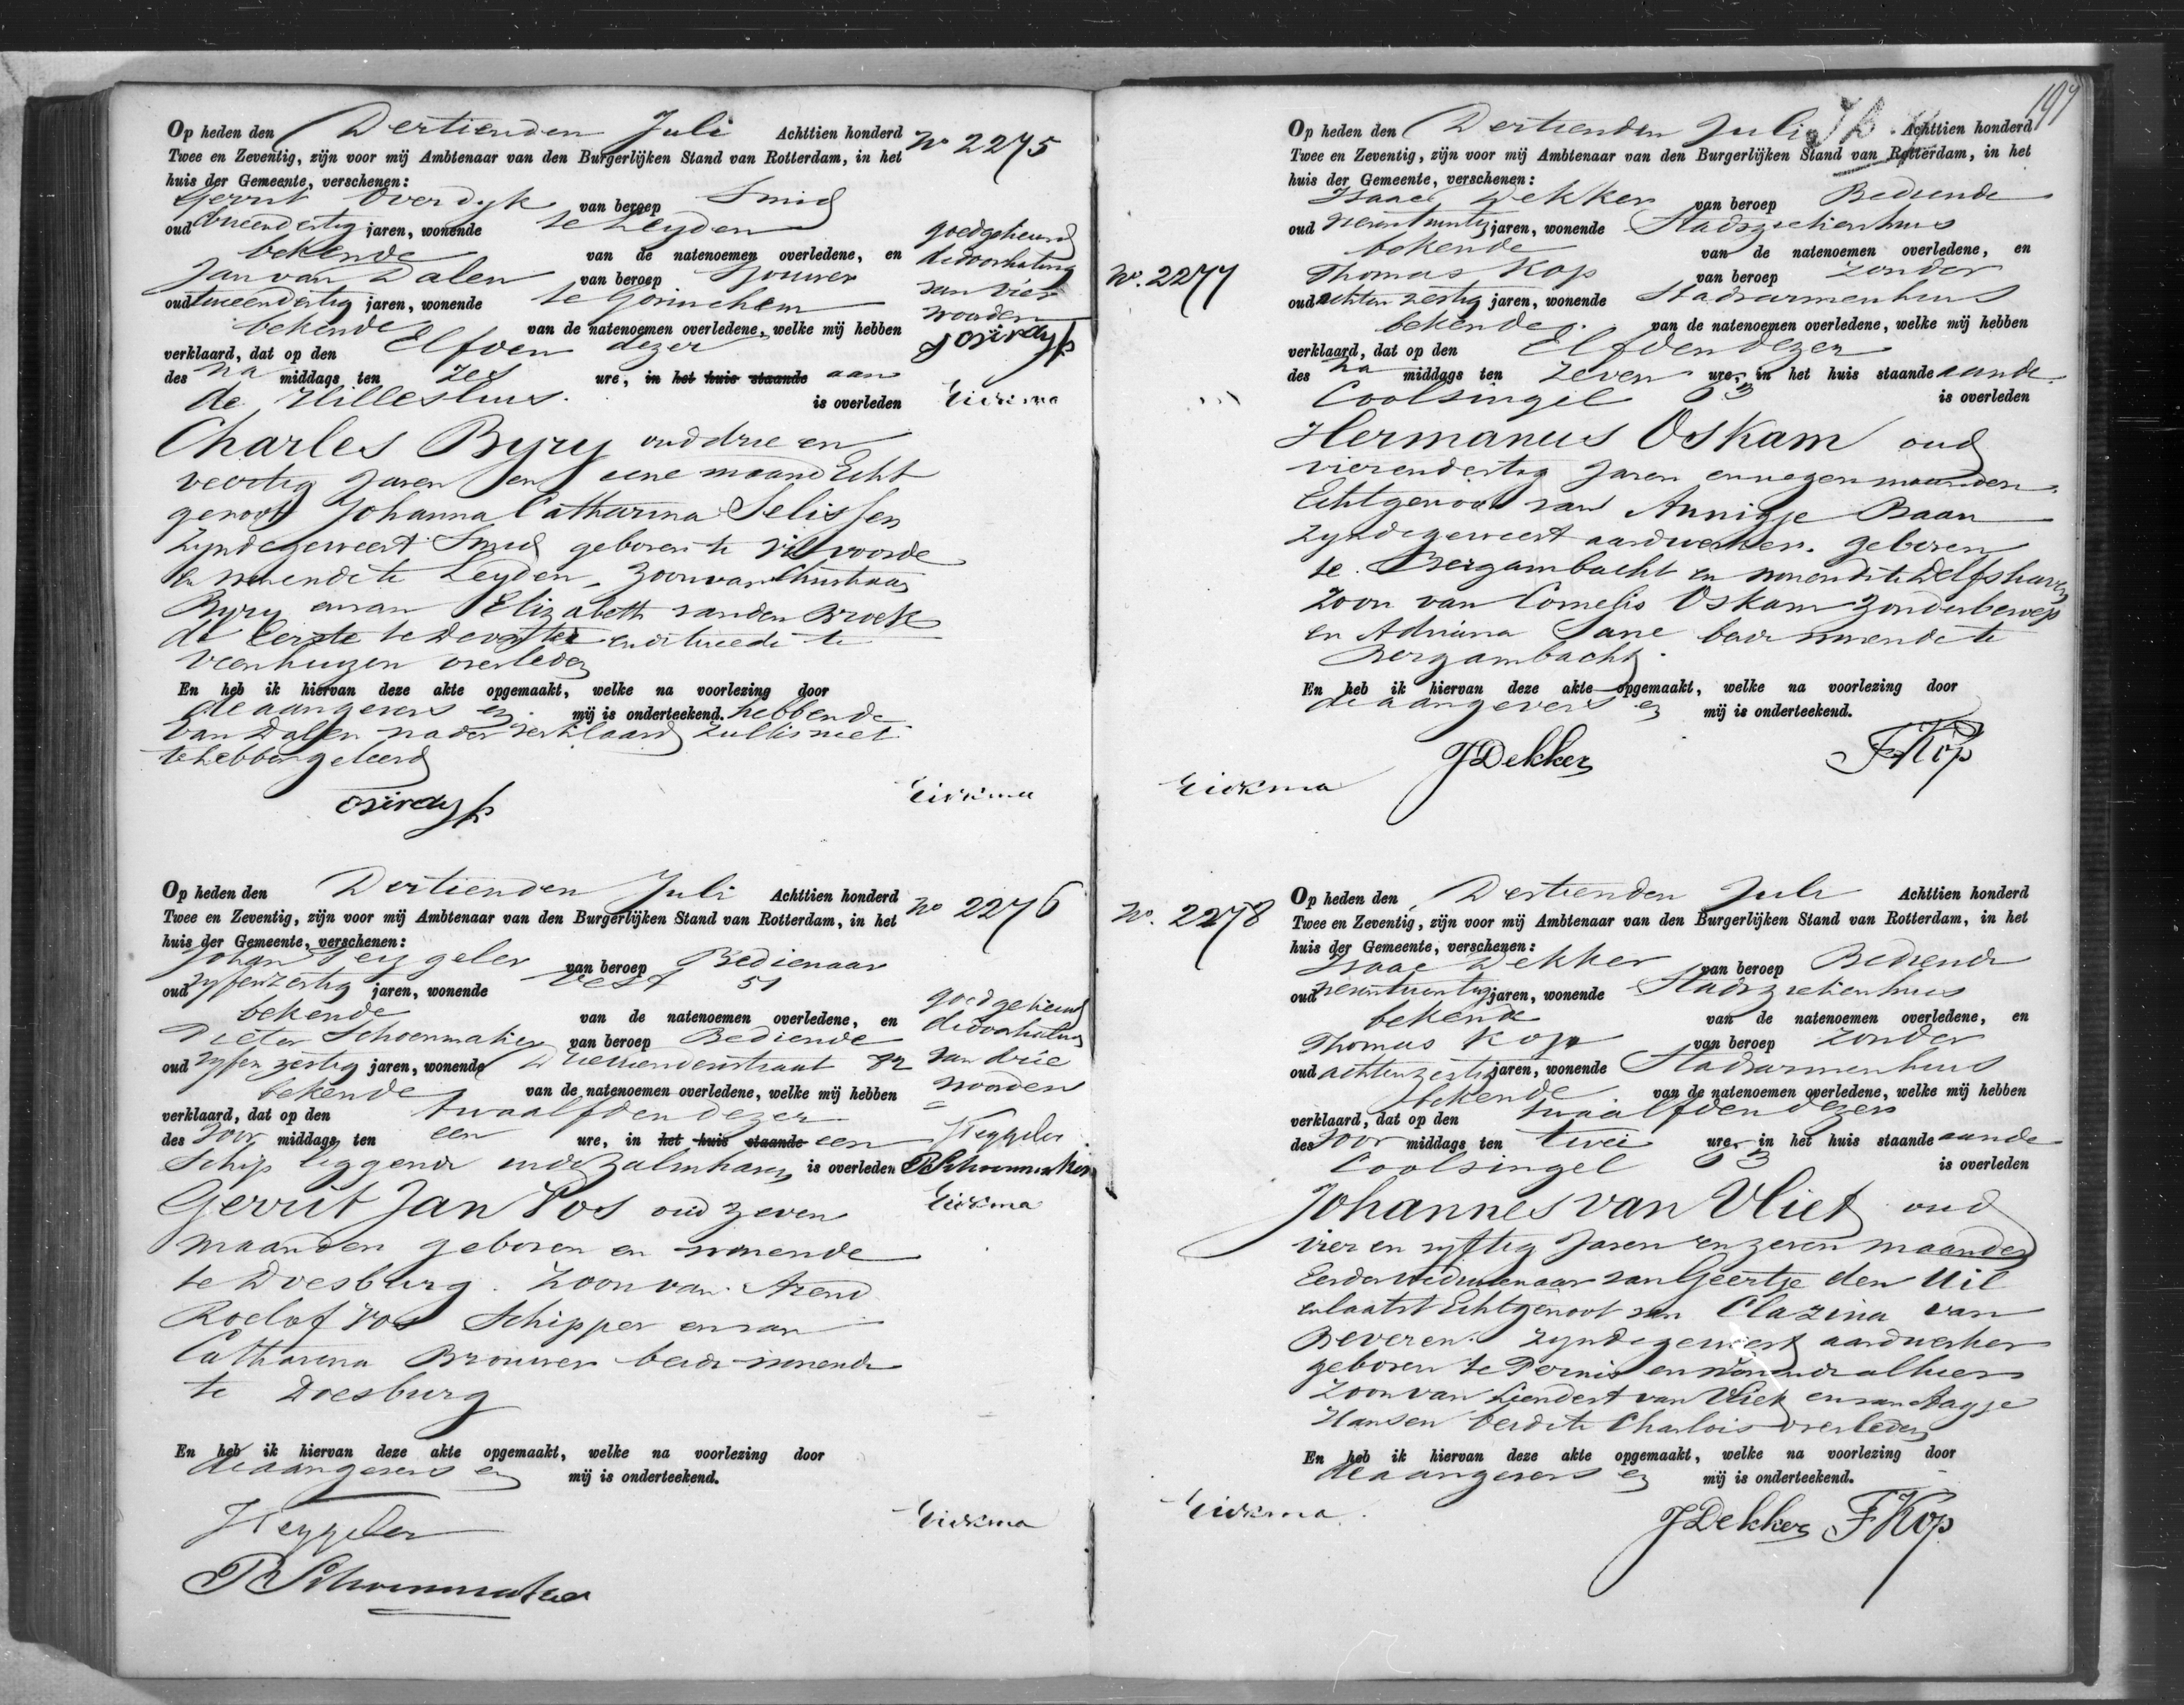 Op heden den Dertienden Juli Achttien honderd No 2275
Twee en Zeventig, zijn voor mij Ambtenaar van den Burgerlijken Stand van Rotterdam, in het
huis der Gemeente, verschenen:
Gerrit Overdyk van beroep Smid
oud tweendertig jaren, wonende te Leyden
bekende van de natenoemen overledene, en
Jan van Dalen van beroep Sjouwer
oud tweendertig jaren, wonende te Gorinchem
bekende van de natenoemen overledene, welke mij hebben
verklaard, dat op den Elfden dezer
des na middags ten zes ure, in het huis staande aan
de Hilleshuis is overleden
Charles Byry oud drie en
veertig Jaren en eene maand Echt
genoot Johanna Catharina Selissen
zynde geweest Smid geboren te Vilvoorde
en wonende te Leyden, Zoon van Christiaan
Byry en van Elizabeth van den Broek
de Eerste te Deventer en de tweede te
Veenhuizen overleden
En heb ik hiervan deze akte opgemaakt, welke na voorlezing door
de aangevers en mij is onderteekend. hebbende
van Dalen nader verklaard zulks niet
te hebben geleerd
goedgekeurd
de doorhaling
van vier
woorden
Eickma
Eickma
Op heden den Dertienden Juli Achttien honderd No 2276
Twee en Zeventig, zijn voor mij Ambtenaar van den Burgerlijken Stand van Rotterdam, in het
huis der Gemeente, verschenen:
Johan Teizgeler van beroep Bedienaar
oud vyfenzestig jaren, wonende Vest 51
bekende van de natenoemen overledene, en
Pieter Schoenmaker van beroep Bediende
oud vyfenzestig jaren, wonende 82
bekende van de natenoemen overledene, welke mij hebben
verklaard, dat op den twaalfden dezer
des voor middags ten een ure, in het huis staande een
Schip liggende in de Zalmhaven is overleden
Gerrit Jan Vos oud zeven
maanden geboren en wonende
te Doesburg. Zoon van Arend
Roelof Vos Schipper en van
Catharina Brouwer beide wonende
te Doesburg
En heb ik hiervan deze akte opgemaakt, welke na voorlezing door
de aangevers en mij is onderteekend.
goedgekeurd
de doorhaling
van drie
woorden
P Schoenmaker
Eickma
Eickma
P Schoenmaker
197
Op heden den Dertienden Juli Achttien honderd
Twee en Zeventig, zijn voor mij Ambtenaar van den Burgerlijken Stand van Rotterdam, in het
huis der Gemeente, verschenen:
Isaac Dekker van beroep Bediende
oud jaren, wonende Stadsziekenhuis
bekende van de natenoemen overledene, en
No. 2277
Thomas Kop van beroep zonder
oud achten zestig jaren, wonende Stadsarmenhuis
bekende van de natenoemen overledene, welke mij hebben
verklaard, dat op den Elfden dezer
des na middags ten Zeven ure, in het huis staande aan de
Coolsingel 63 is overleden
Hermanus Oskam oud
vierendertig Jaren en negen maanden
Echtgenoot van Annigje Baan
zynde geweest aardwerker. geboren
te Bergambacht en wonende te Delfshaven
Zoon van Cornelis Oskam zonder beroep
en Adriana Sane beide wonende te
Bergambacht.
En heb ik hiervan deze akte opgemaakt, welke na voorlezing door
de aangevers en mij is onderteekend.
Eickma JDekker TKop
No. 2278
Op heden den Dertienden Juli Achttien honderd
Twee en Zeventig, zijn voor mij Ambtenaar van den Burgerlijken Stand van Rotterdam, in het
huis der Gemeente, verschenen:
Isaac Dekker van beroep Bediende
oud jaren, wonende Stadsziekenhuis
bekende van de natenoemen overledene, en
Thomas Kop van beroep zonder
oud achtenzestig jaren, wonende Stadsarmenhuis
bekende van de natenoemen overledene, welke mij hebben
verklaard, dat op den twaalfden dezer
des voor middags ten twee ure, in het huis staande aan de
Coolsingel 63 is overleden
Johannes van Vliet oud
vier en vyftig Jaren en zeven maanden
Eerder Weduwenaar van Geertje den Uil
en laatst Echtgenoot van Clazina van
Beveren. zynde geweest aardwerker
geboren te Pernis en wonende alhier
Zoon van Leendert van Vliet en van Aagje
Hansen beide te Charlois overleden
En heb ik hiervan deze akte opgemaakt, welke na voorlezing door
de aangevers en mij is onderteekend.
Eickma JDekker TKop